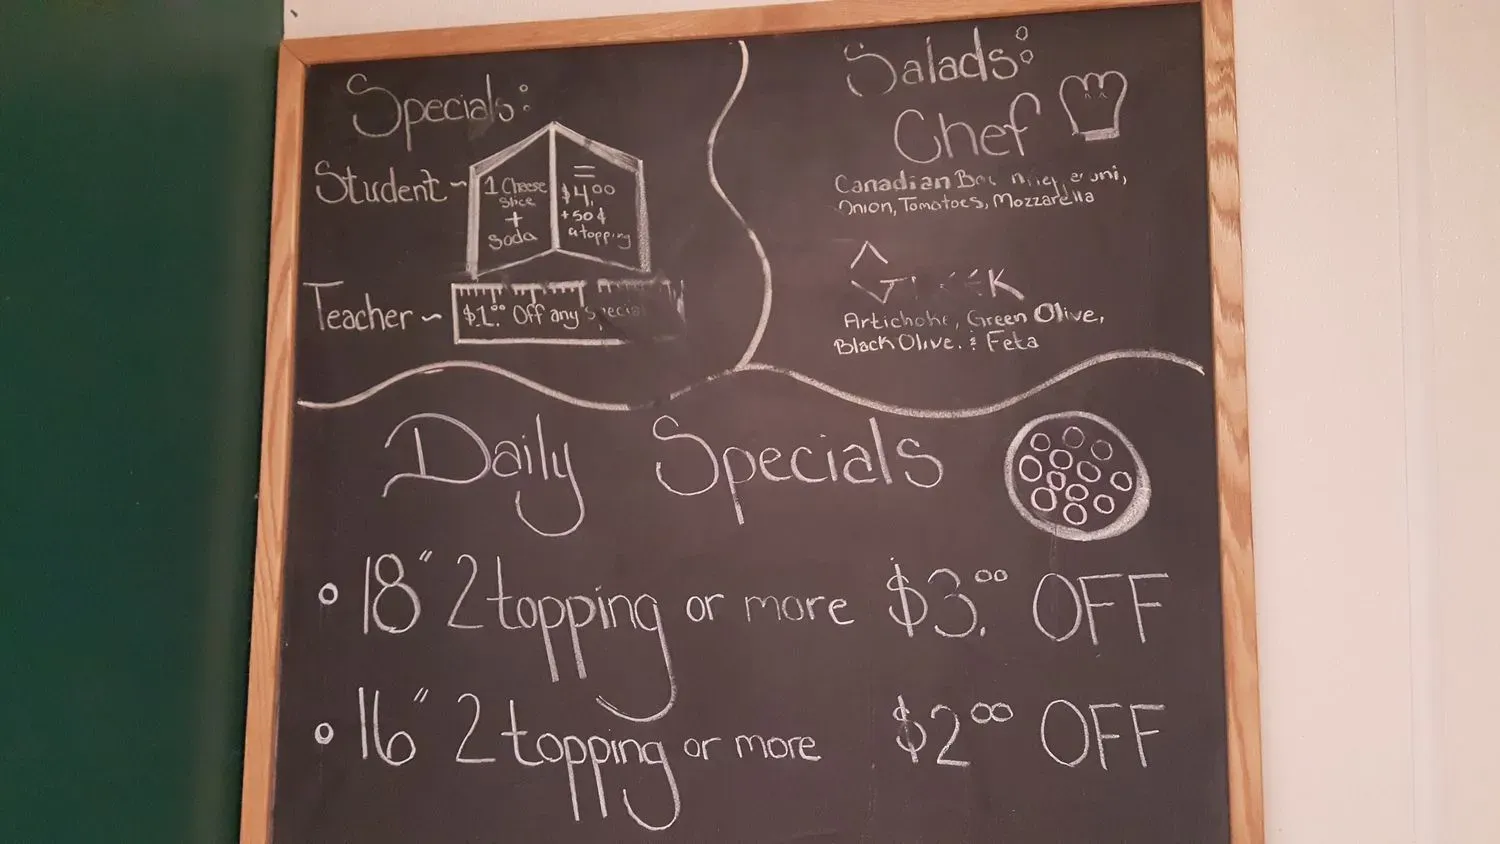 Specials:
Student ~
1 Cheese
Slice
+
Soda
=
$4.00
+ 50¢
a topping
Teacher ~
$1.00 Off any special
Salads:
Chef
Canadian
Onion, Tomatoes, Mozzarella
Artichoke, Green Olive,
Black Olive. & Feta
Daily Specials
18" 2 topping or more $3.00 OFF
16" 2 topping or more $2.00 OFF